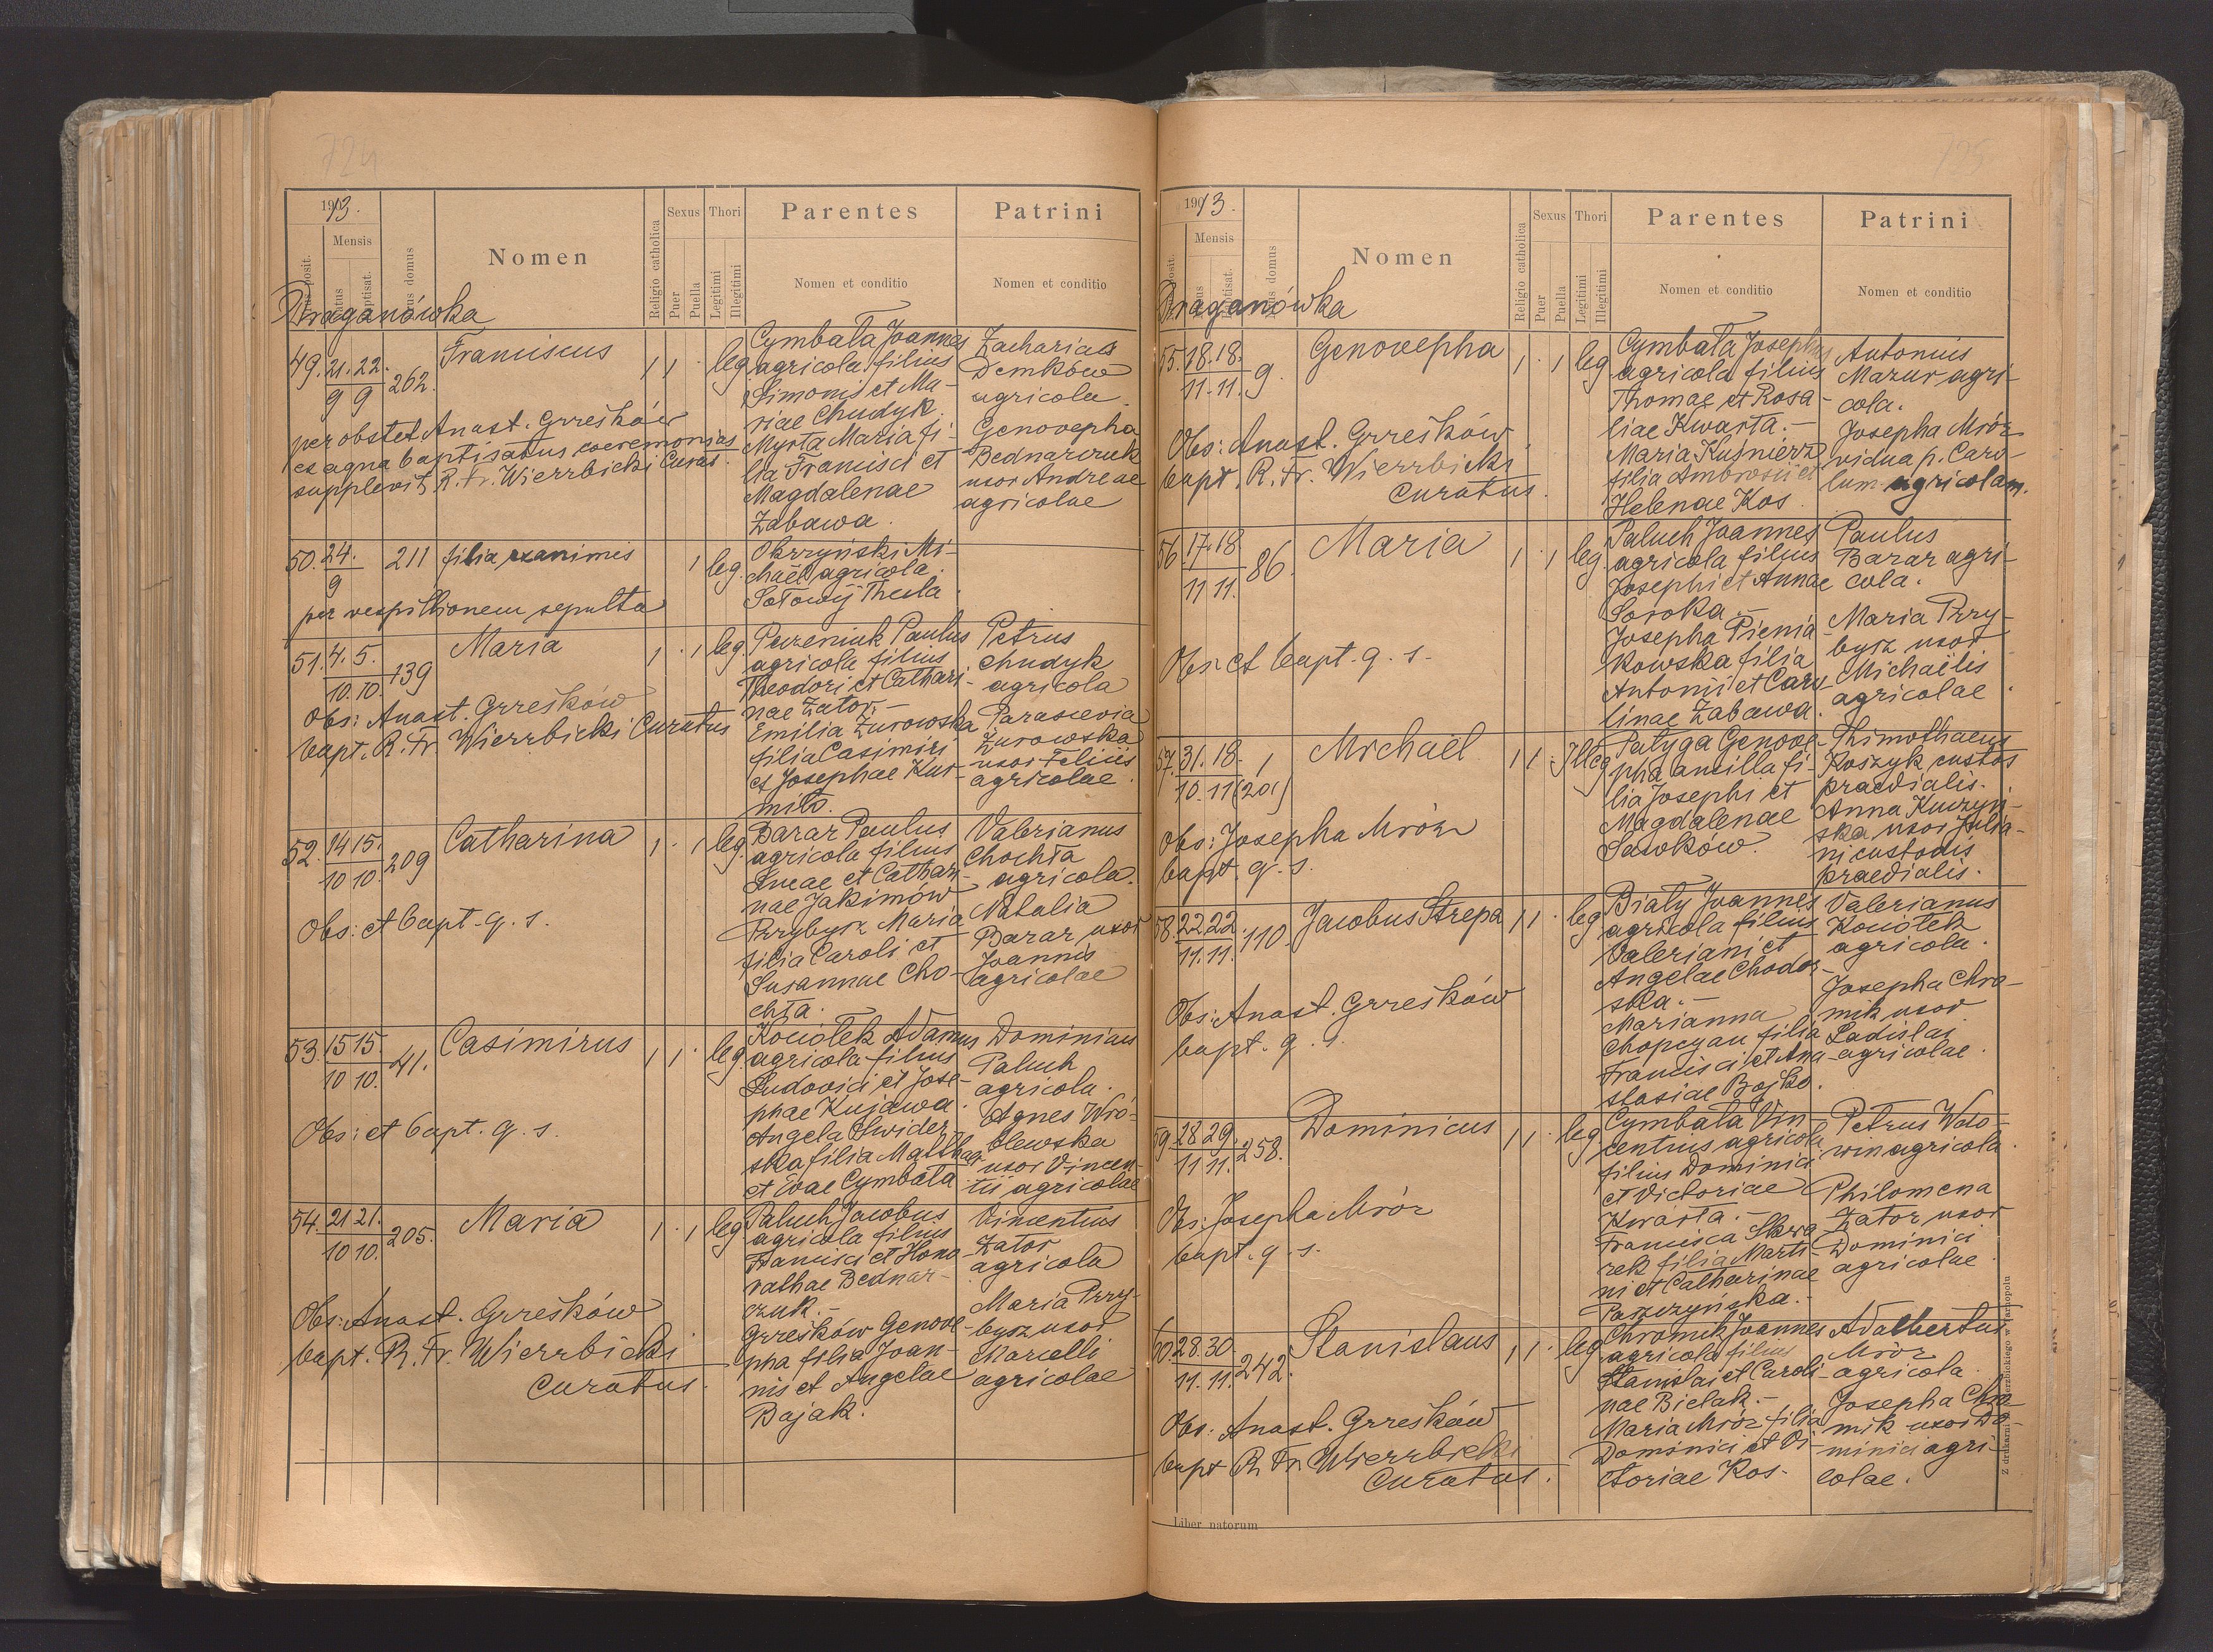 724
1913.
Mensis
Nomen
Religio catholica
Sexus
Puer
Puella
Thori
Legitimi
Illegitimi
Parentes
Nomen et conditio
Patrini
Nomen et conditio
Draganówka
49. 21. 22. 9 9 262. Franciscus 1 1 · leg.
Cymbała Joannes
agricola filius
Simonis et Ma-
riae Chudyk.
Myrta Maria fi-
lia Francisci et
Magdalenae
Zabawa.
Zacharias
Demków
agricola.
Genovepha
Bednarczuk
uxor Andreae
agricolae
per obstet. Anast. Grześków
ex aqua baptisatus coeremonias
supplevit R. Fr. Wierzbicki Curat.
50. 24. 9 211 filia exanimis 1 leg.
Okrzyński Mi-
chaël agricola.
Sołowij Thecla.
per vespillionem sepulta
51. 4. 5. 10. 10. 139 Maria 1 · 1 leg.
Puzeniuk Paulus
agricola filius
Theodori et Cathari-
nae Zator.-
Emilia Żurowska
filia Casimiri
et Josephae Kus-
miło.
Petrus
Chudyk
agricola
Parascevia
Żurowska
uxor Feliiis
agricolae.
Obs: Anast. Grześków
bapt. R. Fr. Wierzbicki Curatus
52. 14 15. 10 10. 209 Catharina 1 · 1 leg.
Barar Paulus
agricola filius
Lucae et Cathari-
nae Jakimów
Przybysz Maria
filia Caroli et
Susannae Cho-
chta.-
Valerianus
Chochta
agricola.
Natalia
Barar, uxor
Joannis
agricolae
Obs: et bapt. q. s.
53. 15 15. 10 10. 41. Casimirus 1 1 · leg.
Kociołek Adamus
agricola filius
Ludovici et Jose-
phae Kujawa.
Angela Świder-
ska filia Matthaei
et Evae Cymbała
Dominicus
Paluch
agricola.
Agnes Wró-
blewska
uxor Vincen-
tii agricolae
Obs: et bapt. q. s.
54. 21 21. 10 10. 205. Maria 1 · 1 leg.
Paluch Jacobus
agricola filius
Francisci et Hono-
rathae Bednar-
czuk.-
Grześków Genove-
pha filia Joan-
nis et Angelae
Bajak.
Vincentius
Zator
agricola
Maria Przy-
bysz uxor
Marcelli
agricolae
Obs: Anast. Grześków
bapt. R. Fr. Wierzbicki
Curatus.
725
1913.
Mensis
Nomen
Religio catholica
Sexus
Puer
Puella
Thori
Legitimi
Illegitimi
Parentes
Nomen et conditio
Patrini
Nomen et conditio
Draganówka
55. 18. 18. 11. 11. 9. Genovepha 1 · 1 leg
Cymbała Josephus
agricola filius
Thomae et Rosa-
liae Kwarta.-
Maria Kuśnierz
filia Ambrosii et
Helenae Kos.
Antonius
Mazur agri-
cola.
Josepha Mróz
vidua p. Caro-
lum agricolam.
Obs: Anast. Grześków.
bapt. R. Fr. Wierzbicki
Curatus.
56. 17. 18 11 11. 86. Maria 1 · 1 leg.
Paluch Joannes
agricola filius
Josephi et Annae
Soroka.-
Josepha Pienia-
kowska filia
Antonii et Caro-
linae Zabawa.
Paulus
Barar agri-
cola.
Maria Przy-
bysz uxor
Michaëlis
agricolae.
Obs: et bapt. q. s.
57. 31. 18. 10. 11 1 (201) Michaël 1 1 · Illeg
Patyga Genove-
pha ancilla fi-
lia Josephi et
Magdalenae
Sawków.
Thimothaeus
Koszyk custos
praedialis.
Anna Kuczyń-
ska uxor Julia-
ni custodis
praedialis.
Obs: Josepha Mróz
bapt. q. s.
58. 22 22. 11. 11. 110. Jacobus Strepa 1 1 · leg
Biały Joannes
agricola filius
Valeriani et
Angelae Chodor-
ska.-
Marianna
Chopcyan filia
Francisci et Ana-
stasiae Bojko.
Valerianus
Kociołek
agricola.
Josepha Chro-
mik uxor
Ladislai
agricolae.
Obs: Anast. Grześków
bapt. q. s.
59. 28 29. 11 11. 258. Dominicus 1 1 · leg.
Cymbała Vin-
centius agricola
filius Dominici
et Victoriae
Kwarta.-
Francisca Skwa-
rek filia Marti-
ni et Catharinae
Paszczyńska.-
Petrus Woło-
win agricola.
Philomena
Zator uxor
Dominici
agricolae.
Obs: Josepha Mróz
bapt. q. s.
60. 28. 30. 11. 11. 242. Stanislaus 1 1 · leg.
Chromik Joannes
agricola filius
Stanislai et Caroli-
nae Bielak.-
Maria Mróz filia
Dominici et Vi-
ctoriae Kos.-
Adalbertus
Mróz
agricola.
Josepha Chro-
mik uxor Do-
minici agri-
colae.
Obs. Anast. Grześków
bapt R. Fr. Wierzbicki
Curatus.
Liber natorum